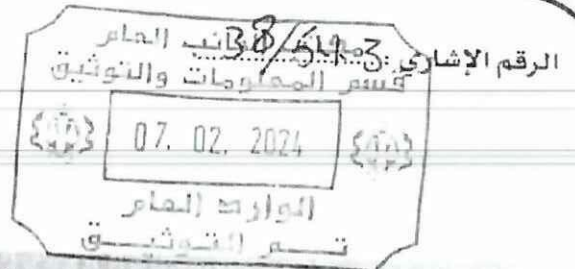 الرقم الإشاري: 38/513
مكتب النائب العام
قسم المعلومات والتوثيق
07. 02. 2024
الوارد العام
تم التوثيق